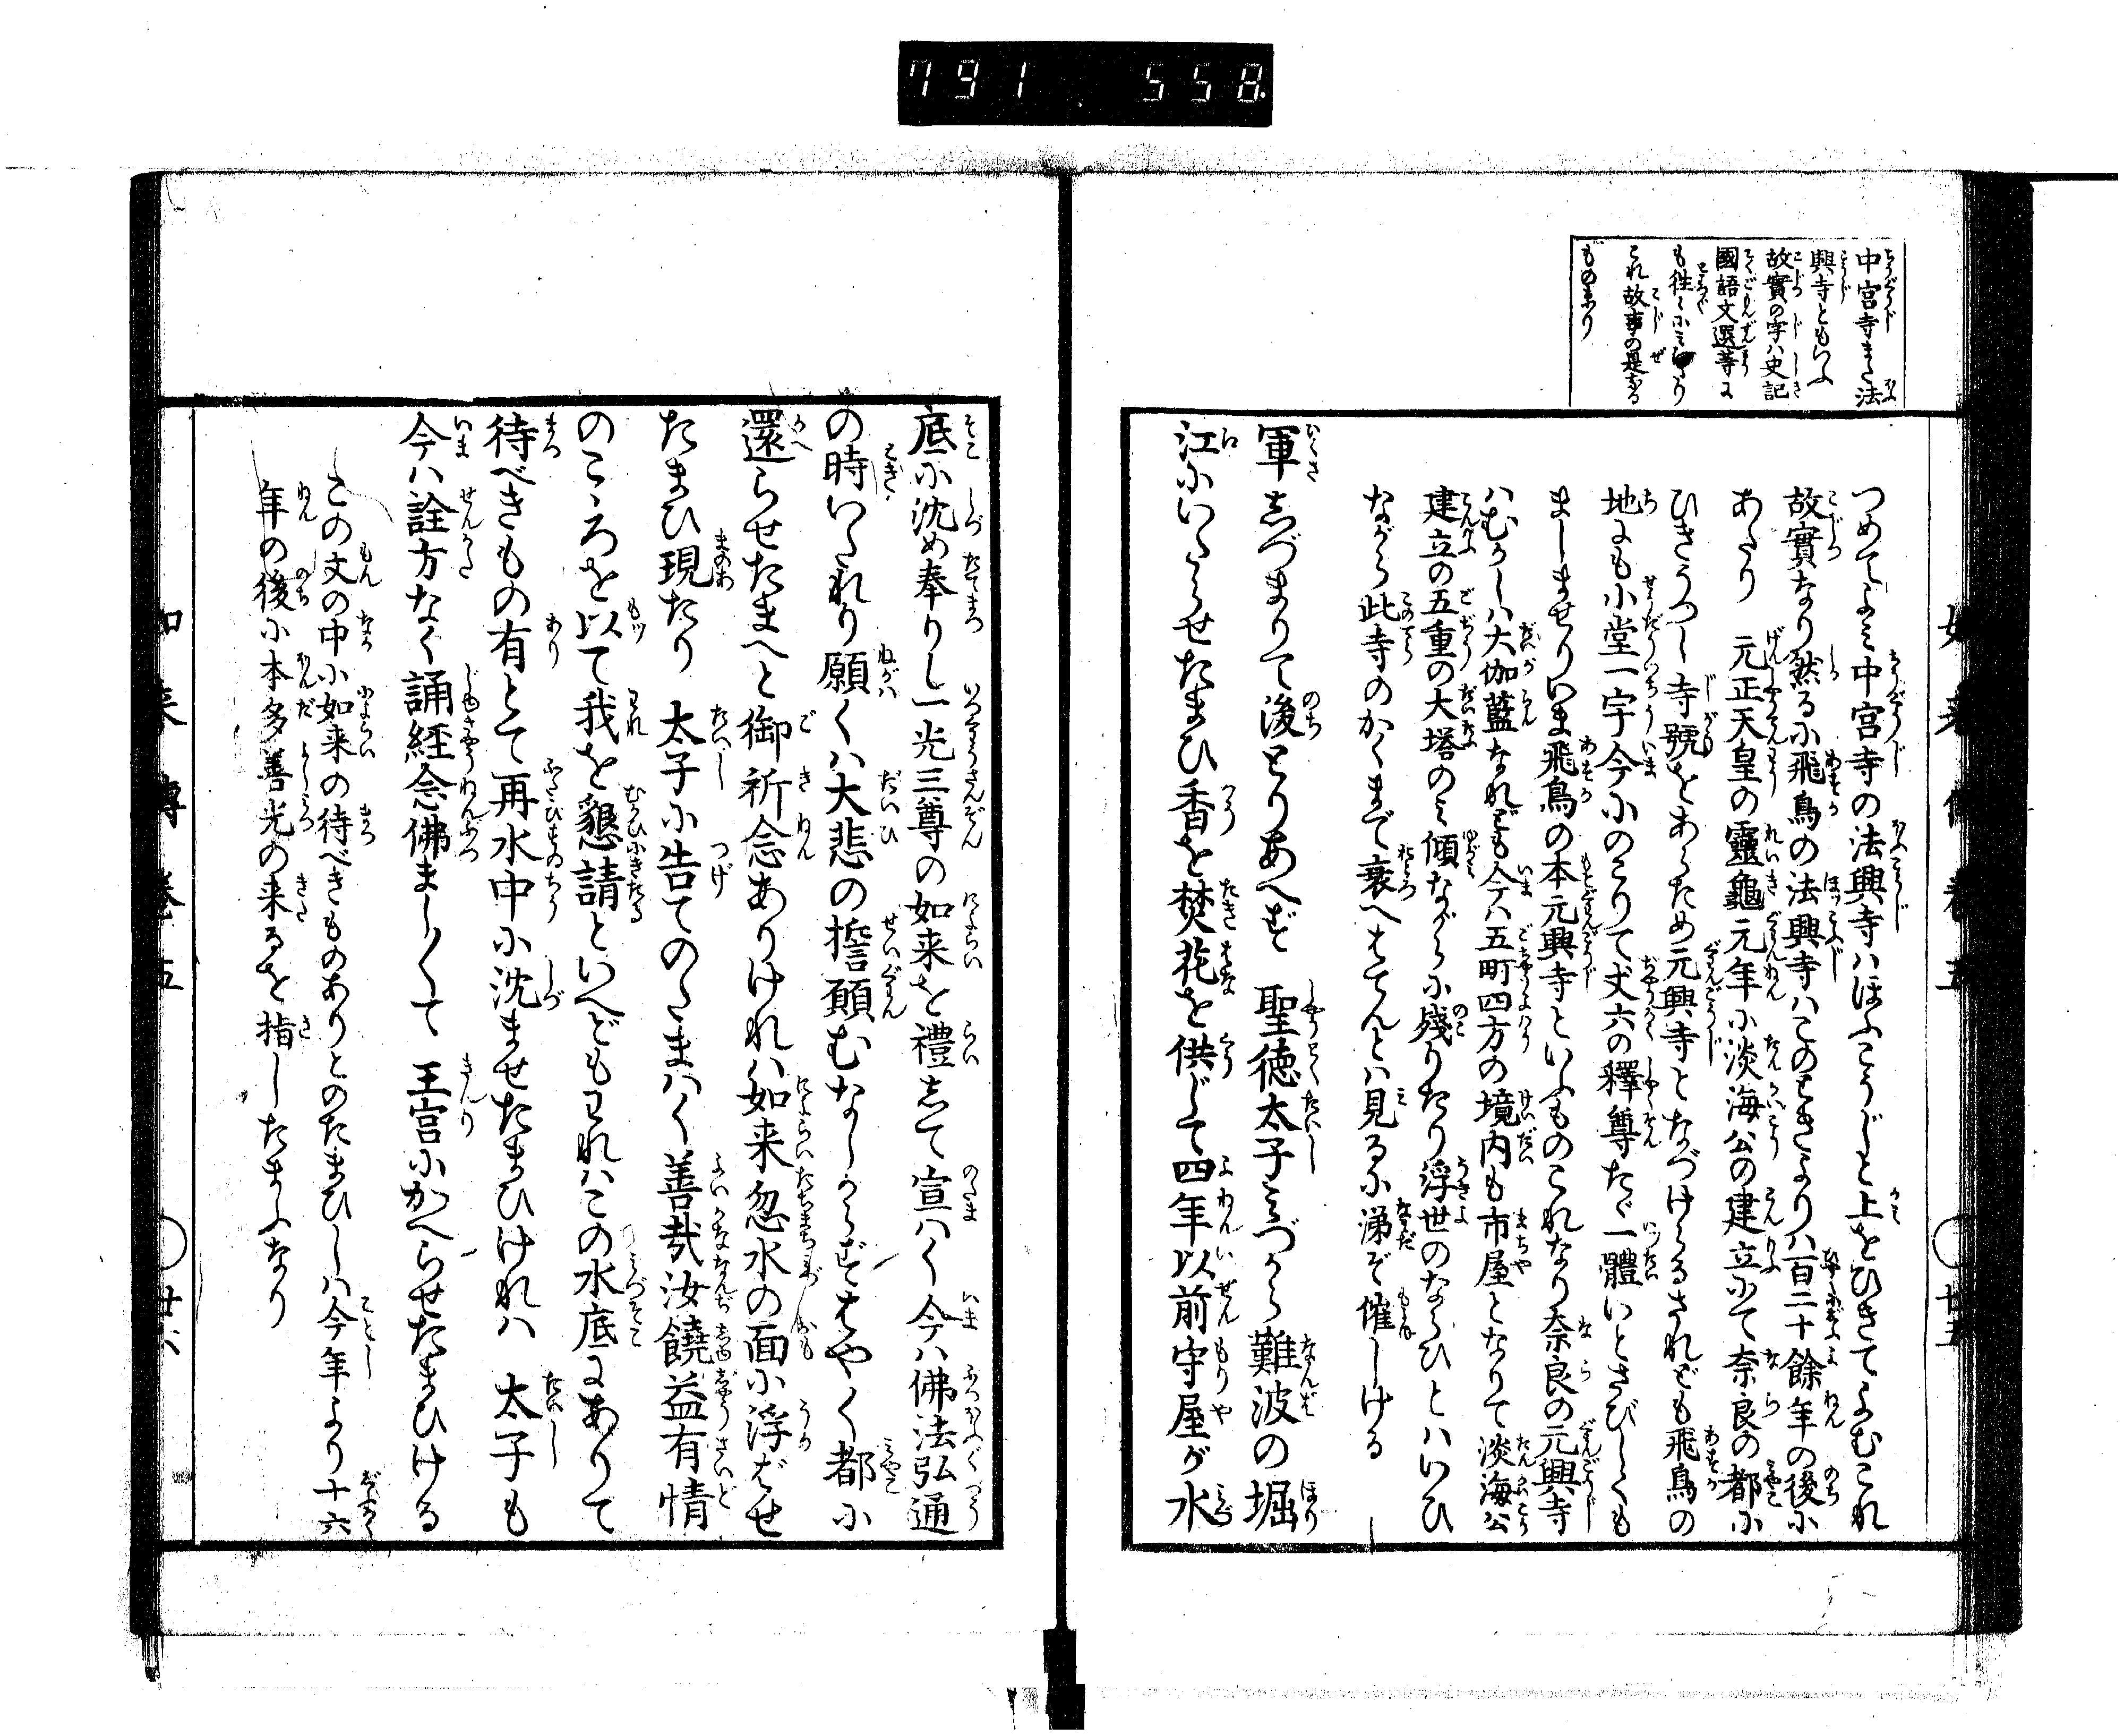 791 558
中宮寺また法
興寺ともいふ
故實の字ハ史記
國語文選等に
も往〻に
これ故事の是なる
ものなり
つめてよミ中宮寺の法興寺ハほふこうじと上をひきてよむこれ
故實なり然るに飛鳥の法興寺ハこのときより八百二十餘年の後に
あたり 元正天皇の靈龜元年に淡海公の建立にて奈良の都に
ひきうつし寺號をあらため元興寺となづけらるされども飛鳥の
地にも小堂一宇今にのこりて丈六の釋尊たゞ一體いとさびしくも
ましませりいま飛鳥の本元興寺といふものこれなり奈良の元興寺
ハむかしハ大伽藍なれども今ハ五町四方の境内も市屋となりて淡海公
建立の五重の大塔のミ傾ながらに殘りたり浮世のならひとハいひ
ながら此寺のかくまで衰へはてんとハ見るに涕ぞ催しける
軍しづまりて後とりあへず 聖徳太子ミづから難波の堀
江にいたらせたまひ香を焚花を供じて四年以前守屋が水
如来傳巻五 ○廿五
底に沈め奉りし一光三尊の如来を禮して宣ハく今ハ佛法弘通
の時いたれり願くハ大悲の誓願むなしからずはやく都に
還らせたまへと御祈念ありけれハ如来忽水の面に浮ばせ
たまひ現たり 太子に告てのたまハく善哉汝饒益有情
のこゝろを以て我を懇請といへどもわれハこの水底にありて
待べきもの有とて再水中に沈ませたまひけれハ 太子も
今ハ詮方なく誦経念佛まし〳〵て 王宮にかへらせたまひける
この文の中に如来の待べきものありとのたまひしハ今年より十六
年の後に本多善光の来るを指したまふなり
如来傳巻五 ○廿六